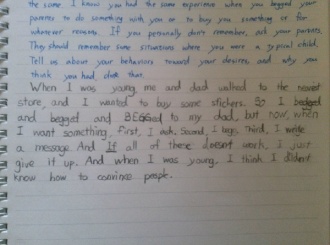 the same. I know you had the same experience when you begged your
parents to do something with you or to buy you something or for
whatever reasons. If you personally don't remember, ask your parents.
They should remember some situations where you were a typical child.
Tell us about your behaviors toward your desires, and why you
think you had done that.
When I was young, me and dad walked to the nearest
store, and I wanted to buy some stickers. So I begged
and begged and BEGGED to my dad, but now, when
I want something, First, I ask. Second, I beg. Third, I write
a message. And If all of these doesnt work, i just
give it up. And when I was young, I think I dident
know how to convince people.